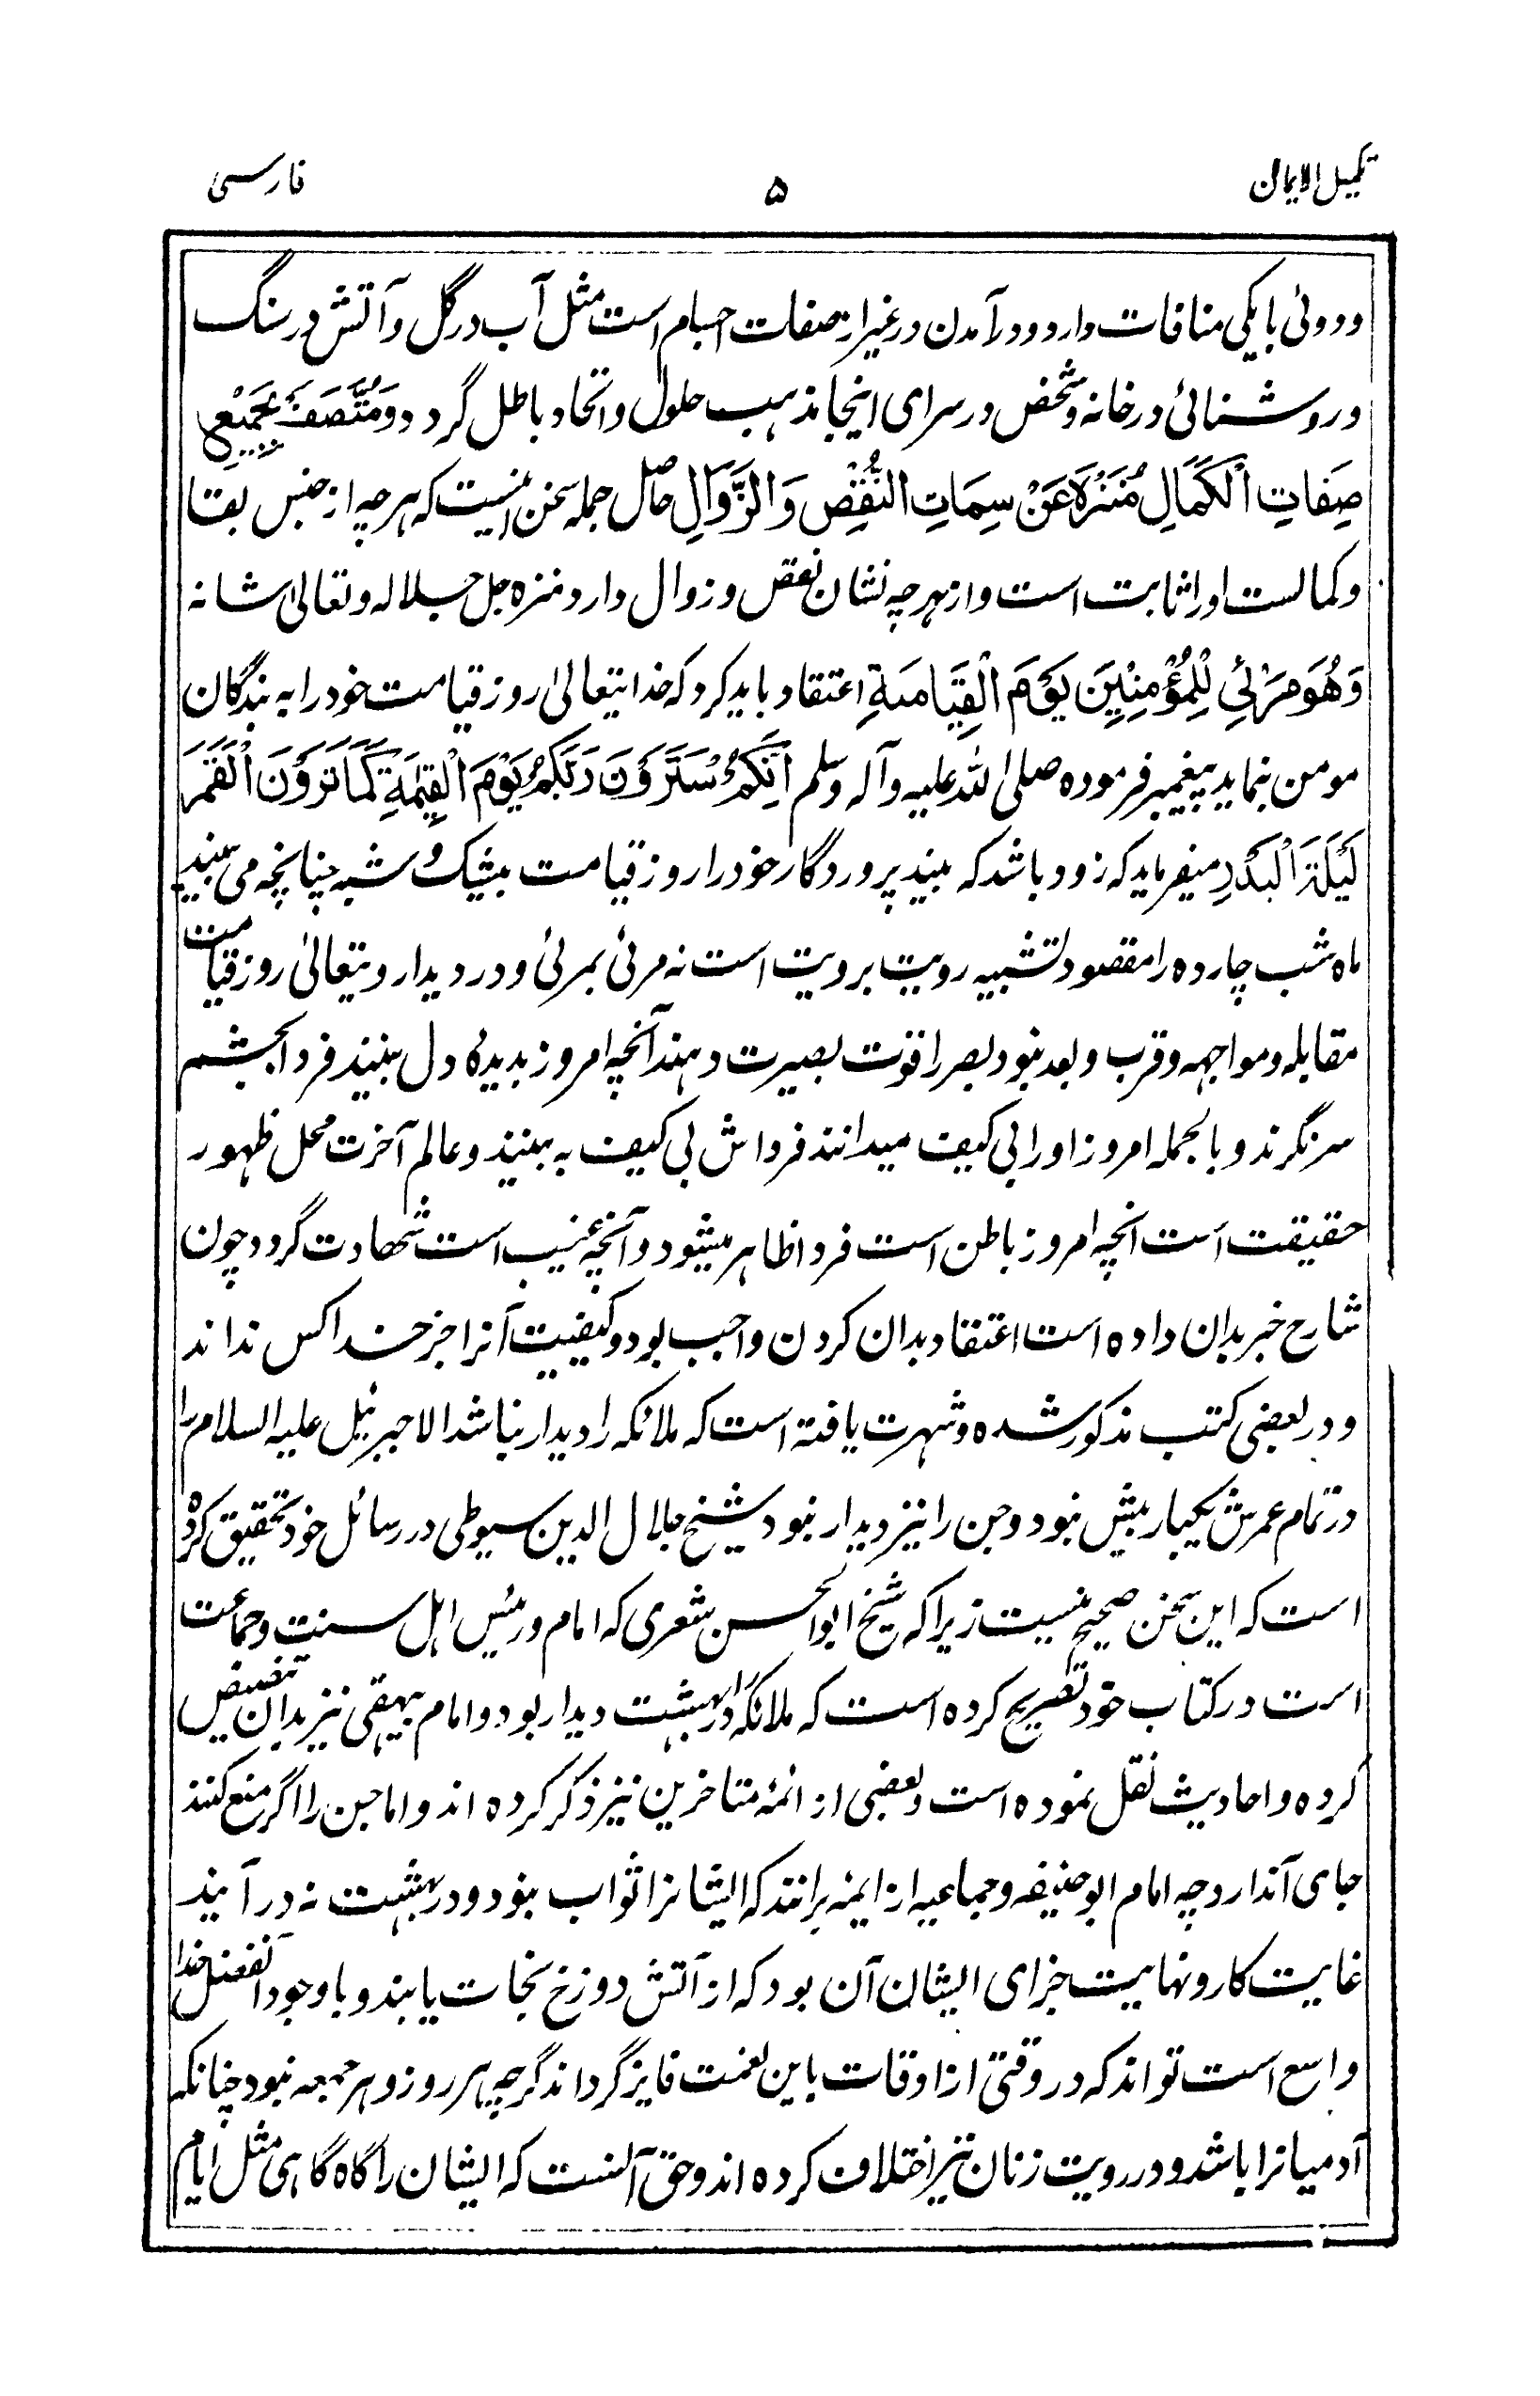 تکمیل الایمان
۵
فارسی
و دوئی با یکی منافات دارد و درآمدن در غیر از صفات اجسام است مثل آب در گل و آتش در سنگ
و روشنائی در خانه و شخص در سرای اینجا مذهب حلول و اتحاد باطل گردد وَمُتَّصَفٌ بِجَمِیْعِ
صِفَاتِ الْکَمَالِ مُنَزَّهٌ عَنْ سِمَاتِ النَّقْصِ وَالزَّوَالِ حاصل جمله سخن اینست که هر چه از جنس بقا
و کمالست او را ثابت است و از هر چه نشان نقص و زوال دارد منزه جل جلاله و تعالیٰ شانه
وَهُوَ مَرْئِیٌ لِلْمُؤْمِنِیْنَ یَوْمَ الْقِیَامَةِ اعتقاد باید کرد که خدایتعالیٰ روز قیامت خود را به بندگان
مومن بنماید پیغمبر فرموده صلی الله علیه و آله و سلم اِنَّکُمْ سَتَرَوْنَ رَبَّکُمْ یَوْمَ الْقِیٰمَةِ کَمَا تَرَوْنَ الْقَمَرَ
لَیْلَةَ الْبَدْرِ میفرماید که زود باشد که ببینید پروردگار خود را روز قیامت بیشک و شبه چنانچه می بینید
ماه شب چارده را مقصود تشبیه رویت برویت است نه مرئی بمرئی و در دیدار ویتعالیٰ روز قیامت
مقابله و مواجهه و قرب و بعد نبود بصر را قوت بصیرت دهند آنچه امروز بدیدهٔ دل بینند فردا بچشم
سر نگرند و بالجمله امروز او را بی کیف میدانند فرداش بی کیف به بینند و عالم آخرت محل ظهور
حقیقت است انچه امروز باطن است فردا ظاهر میشود و آنچه غیب است شهادت گردد چون
شارح خبر بدان داده است اعتقاد بدان کردن واجب بود و کیفیت آنرا جز خدا کس نداند
و در بعضی کتب مذکور شده و شهرت یافته است که ملائکه را دیدار نباشد الا جبرئیل علیه السلام را
در تمام عمرش یکبار بیش نبود و جن را نیز دیدار نبود شیخ جلال الدین سیوطی در رسائل خود تحقیق کرده
است که این سخن صحیح نیست زیرا که شیخ ابوالحسن شعری که امام و رئیس اهل سنت و جماعت
است در کتاب خود تصریح کرده است که ملائکه را در بهشت دیدار بود و امام بیهقی نیز بدان تنصیص
کرده و احادیث نقل نموده است و بعضی از ائمهٔ متاخرین نیز ذکر کرده اند و اما جن را اگر منع کنند
جای آندارد چه امام ابوحنیفه و جماعیه از ایمه برانند که ایشانرا ثواب نبود و در بهشت نه در آیند
غایت کار و نهایت جزای ایشان آن بود که از آتش دوزخ نجات یابند و با وجود آن فضل خدا
واسع است تواند که در وقتی از اوقات باین نعمت فایز گرداند گرچه هر روز و هر جمعه نبود چنانکه
آدمیانرا باشد و در رویت زنان نیز اختلاف کرده اند و حق آنست که ایشان را گاه گاهی مثل ایام